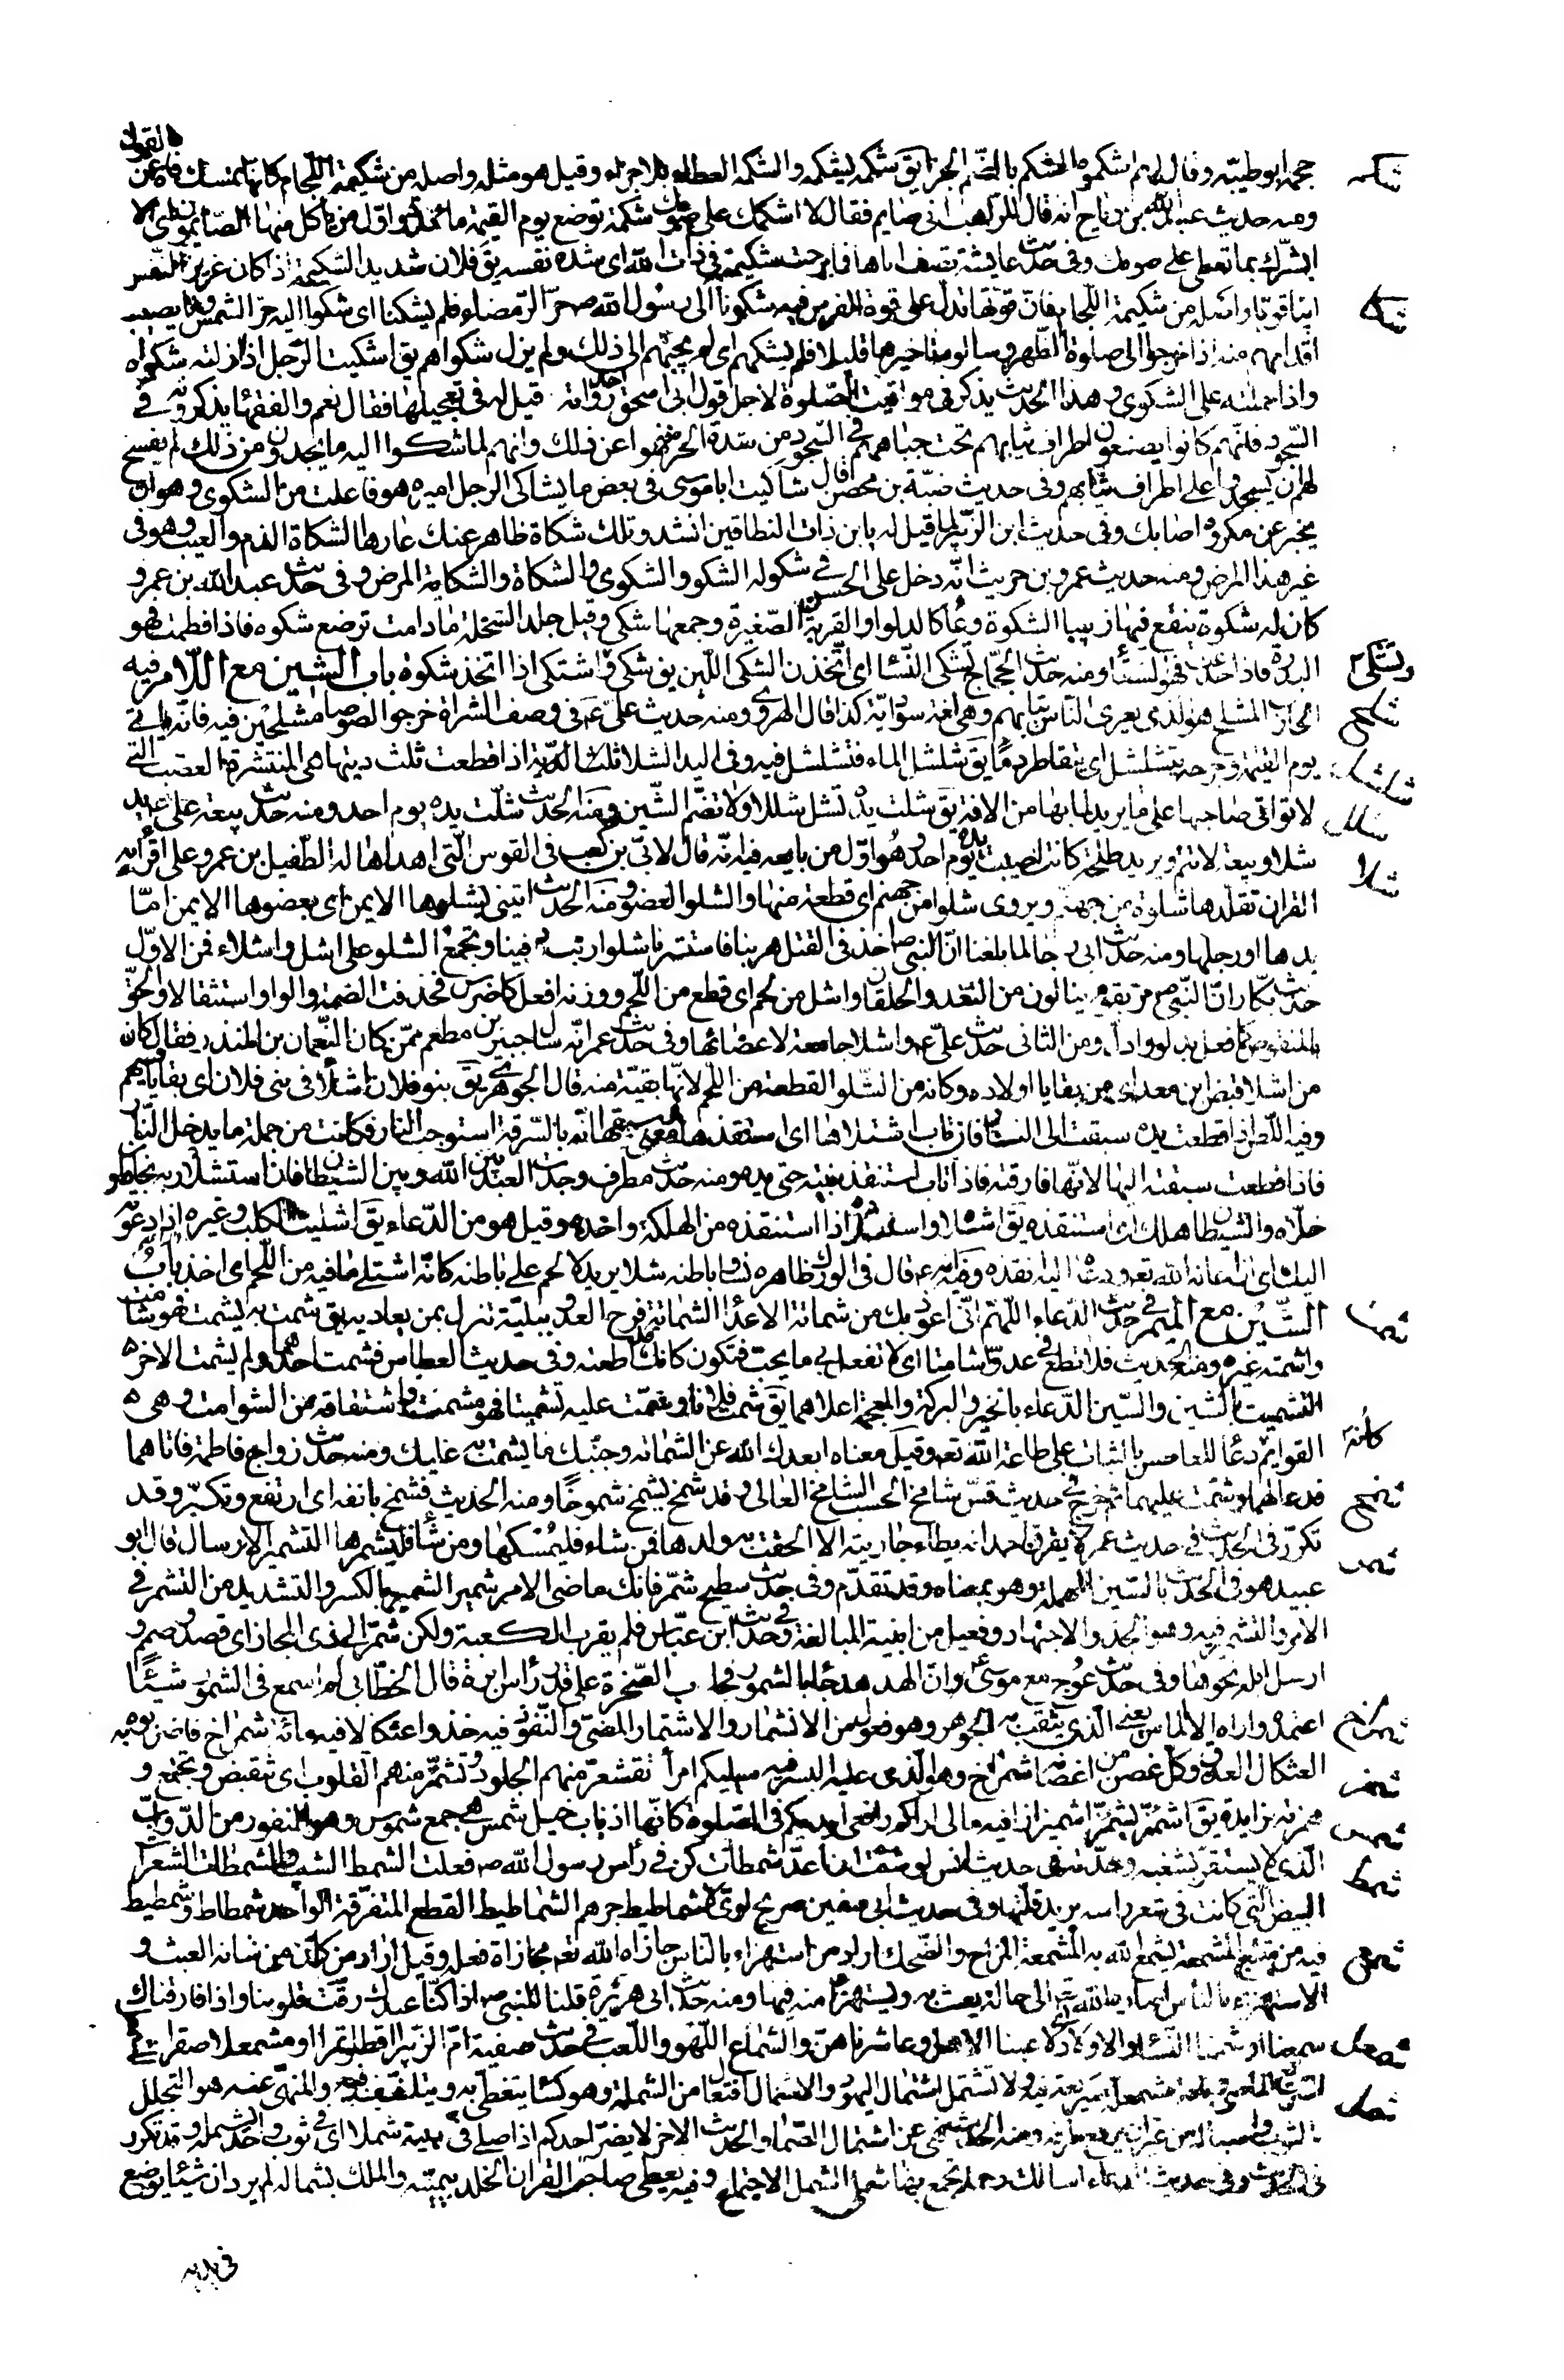 حجمه ابو طيبة وقال لهم اشكموه الشكم بالضم الجزاء يق شكمه يشكمه والشكم العطاء بلا جزاء وقيل هو مثله واصله من شكيمة اللجام كانها تمسك فاه عن القول
شكم
ومنه حديث عبد الله بن رباح انه قال للراهب انى صايم فقال الا اشكمك على صومك شكمة توضع يوم القيمة مائدة واول من ياكل منها الصايمون اى الا
ابشرك بما تعطى على صومك وفى حديث عايشة تصف اباها فما برحت شكيمته فى ذات الله اى شدة نفسه يق فلان شديد الشكيمة اذا كان عزيز النفس
ابيا قويا واصله من شكيمة اللجام فان قوتها تدل على قوة الفرس فيه شكونا الى رسول الله ص حر الرمضاء فلم يشكنا اى شكوا اليه حر الشمس وما يصيب
شكا
اقدامهم منه اذا خرجوا الى صلوة الظهر وسالوه تاخيرها قليلا فلم يشكهم اى لم يجبهم الى ذلك ولم يزل شكواهم يق اشكيت الرجل اذا ازلت شكواه
واذا حملته على الشكوى وهذا الحديث يذكر فى مواقيت الصلوة لاجل قول ابى اسحق احد رواته قيل له فى تعجيلها فقال نعم والفقهاء يذكرونه فى
السجود فانهم كانوا يضعون اطراف ثيابهم تحت جباههم فى السجود من شدة الحر فنهوا عن ذلك وانهم لما شكوا اليه ما يجدون من ذلك لم يفسح
لهم ان يسجدوا على اطراف ثيابهم وفى حديث ضبة بن محصن قال شاكيت ابا موسى فى بعض ما يشاكى الرجل اميره هو فاعلت من الشكوى وهو ان
يخبر عن مكروه اصابك وفى حديث ابن الزبير لما قيل له يا بن ذات النطاقين انشد وتلك شكاة ظاهر عنك عارها الشكاة الذم والعيب وهو فى
غير هذا المرض ومنه حديث عمرو بن حريث انه دخل على الحسن فى شكو له الشكو والشكوى والشكاة والشكاية المرض وفى حديث عبد الله بن عمرو
كان له شكوة ينقع فيها زبيبا الشكوة وعاء كالدلو او القربة الصغيرة وجمعها شكى وقيل جلد السخلة ما دامت ترضع شكوة فاذا فطمت فهو
البدرة ومنه حديث الحجاج تشكى النساء اى اتخذن الشكى اللبن يق شكى وتشكى واشتكى اذا اتخذ شكوة باب الشين مع اللام فيه
الحارب المشلح هو الذى يعرى الناس ثيابهم وهى لغة سوادية كذا قال الهروى ومنه حديث على ع فى وصف الشراة خرجوا لصوصا مشلحين فيه فانه ياتى
شلح
يوم القيمة وجرحه يتشلشل اى يتقاطر دما يق شلشل الماء فتشلشل فيه وفى اليد الشلا ثلث الدية اذا قطعت ثلث ديتها هى المنتشرة العصب التى
شلشل
لا تواتى صاحبها على ما يريد لما بها من الافة يق شلت يده تشل شللا ولا تضم الشين ومنه الحديث شلت يده يوم احد ومنه حديث بيعة على ع يد
شلل
شلا وبيعة لا تتم ويريد طلحة كانت اصيبت يده يوم احد وهو اول من بايعه فيه انه قال لابى بن كعب فى القوس التى اهداها له الطفيل بن عمرو على اقرائه
شلا
القران تقلدها شلوة من جهنم ويروى شلوا من جهنم اى قطعة منها والشلو العضو ومنه الحديث ايتنى بشلوها الايمن اى بعضوها الايمن اما
يدها او رجلها ومنه حديث ابى رجا لما بلغنا ان النبى ص اخذ فى القتل هربنا فاستثرنا شلو ارنب دفينا وتجمع الشلو على اشل واشلاء فمن الاول
حديث بكار ان النبى ص مر بقوم ينالون من الثعد والحلقان واشل من لحم اى قطع من اللحم ووزنه افعل كاضرس فحذفت الضمة والواو استثقالا والحق
بالمنقوص كما فعل بدلو وادل ومن الثانى حديث على ع واشلا جامعة لاعضائها وفى حديث عمر انه سال جبير بن مطعم ممن كان النعمان بن المنذر فقال كان
من اشلاء قنص ابن معد اى من بقايا اولاده وكانه من الشلو القطعة من اللحم لانها بقية منه قال الجوهرى يق بنو فلان اشلاء فى بنى فلان اى بقايا فيهم
وفيه اللص اذا قطعت يده سبقت الى النار فان تاب اشتلاها اى استنقذها ومعنى سبقها انه بالسرقة استوجب النار فكانت من جملة ما يدخل النار
فاذا قطعت سبقته اليها لانها فارقته فاذا تاب استنقذ بنيته حتى يده ومنه حديث مطرف وجدت العبد بين الله وبين الشيطان فان استشلاه ربه نجا وان
خلاه والشيطان هلك اى استنقذه يق اشتلاه واستشلاه اذا استنقذه من الهلكة واخذه وقيل هو من الدعاء يق اشليت الكلب وغيره اذا دعوته
اليك اى ان اعانه الله تع ودعاه اليه انقذه وفيه انه ع قال فى الورك ظاهره نسا وباطنه شلا يريد لا لحم على باطنه كانه اشتلى ما فيه من اللحم اى اخذ باب
الشين مع الميم فى حديث الدعاء اللهم انى اعوذ بك من شماتة الاعداء الشماتة فرح العدو ببلية تنزل بمن يعاديه يق شمت به يشمت فهو شامت
شمت
واشمته غيره ومنه الحديث فلا تطع فى عدوا شامتا اى لا تفعل بى ما يحب فتكون كانك اطعته وفى حديث العطاس فشمت احدهما ولم يشمت الاخر
التشميت بالشين والسين الدعاء بالخير والبركة والمعجمة اعلاهما يق شمت فلانا وشمت عليه تشميتا فهو مشمت واشتقاقه من الشوامت وهى
القوايم كانه دعا للعاطس بالثبات على طاعة الله تع وقيل معناه ابعدك الله عن الشماتة وجنبك ما يشمت به عليك ومنه حديث زواج فاطمة فاتاهما
فدعا لهما وشمت عليهما ثم خرج فى حديث قس شامخ الحسب الشامخ العالى وقد شمخ يشمخ شموخا ومنه الحديث فشمخ بانفه اى ارتفع وتكبر وقد
شمخ
تكرر فى الحديث فى حديث عمر لا يقرن احد انه يطاء جاريته الا الحقت به ولدها فمن شاء فليمسكها ومن شاء فليشمرها التشمير الارسال قال ابو
شمر
عبيد هو فى الحديث بالسين المهملة وهو بمعناه وقد تقدم وفى حديث سطيح شمر فانك ماضى الامر شمير الشمير بالكسر والتشديد من التشمر فى
الامر والتشمير فيه وهو الجد والاجتهاد وفعيل من ابنية المبالغة فى حديث ابن عباس فلم يقرب الكعبة ولكن شمر الى ذى المجاز اى قصد وصمم و
ارسل ابله نحوها وفى حديث عوج مع موسى ع وان الهدهد جاء بالشمور فجاب الصخرة على قدر راس ابرة قال الخطابى لم اسمع فى الشمور شيئا
اعتمده واراه الالماس يعنى الذى يثقب به الجوهر وهو فعول من الانشمار والاشتمار المضى والنفوذ فيه خذوا عثكالا فيه مائة شمراخ فاضربوه به
شمراخ
العثكال العذق وكل غصن من اغصانه شمراخ وهو الذى عليه البسر فيه سيليكم امراء تقشعر منهم الجلود وتشمئز منهم القلوب اى تتقبض وتجتمع و
شمز
همزته زايدة يق اشمئز يشمئز اشميزازا فيه مالى اراكم رافعى ايديكم فى الصلوة كانها اذناب خيل شمس هى جمع شموس وهو النفور من الدواب
شمس
الذى لا يستقر لشغبه وحدته فى حديث انس لو شئت ان اعد شمطات كن فى راس رسول الله ص فعلت الشمط الشيب والشمطات الشعرات
شمط
البيض التى كانت فى شعر راسه يريد قلتها وفى حديث ابى سفين صريح لوى لا شماطيط جرهم الشماطيط القطع المتفرقة الواحد شمطاط وشمطيط
فيه من يتتبع المشمعة يشمع الله به المشمعة المزاح والضحك اراد من استهزاء بالناس جازاه الله تع مجازاة فعله وقيل اراد من كان من شانه العبث و
شمع
الاستهزاء بالناس اصاره الله تع الى حالة يعبث به ويستهزا منه فيها ومنه حديث ابى هريرة قلنا للنبى ص اذا كنا عندك رقت قلوبنا واذا فارقناك
شممنا او شمعنا النساء والاولاد اى لاعبنا الاهل وعاشرناهن والشماع اللهو واللعب فى حديث صفية ام الزبير اقطا وتمرا او مشمعلا صقرا
شمعل
المشمعل السريع الماضى فيه ولا تشتمل اشتمال اليهود الاشتمال افتعال من الشملة وهو كساء يتغطى به ويتلفف فيه والمنهى عنه هو التجلل
شمل
بالثوب واسباله من غير ان يرفع طرفه ومنه الحديث نهى عن اشتمال الصماء والحديث الاخر لا يضر احدكم اذا صلى فى بيته شملا اى فى ثوب واحد يشمله وقد تكرر
فى الحديث وفى حديث الدعاء اسالك رحمة تجمع بها شملى الشمل الاجتماع وفيه يعطى صاحب القران الخلد بيمينه والملك بشماله لم يرد ان شيئا يوضع
فى يديه